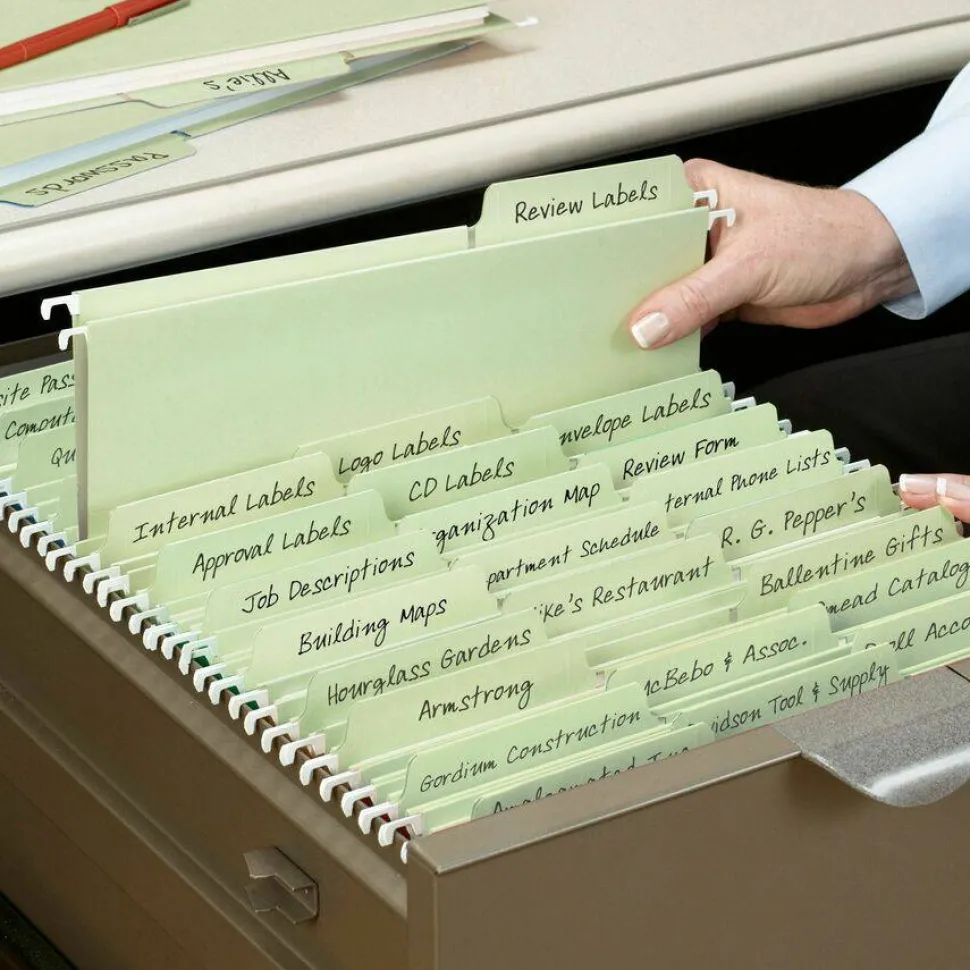 Allie's
Passwords
Review Labels
site Pass
Comput
Qu
Logo Labels
nvelope Labels
Internal Labels
CD Labels
Review Form
Approval Labels
ganization Map
ternal Phone Lists
Job Descriptions
partment Schedule
R. G. Pepper's
Building Maps
ike's Restaurant
Ballentine Gifts
Hourglass Gardens
mead Catalog
Armstrong
cBebo & Assoc.
ll Acco
Gordium Construction
idson Tool & Supply